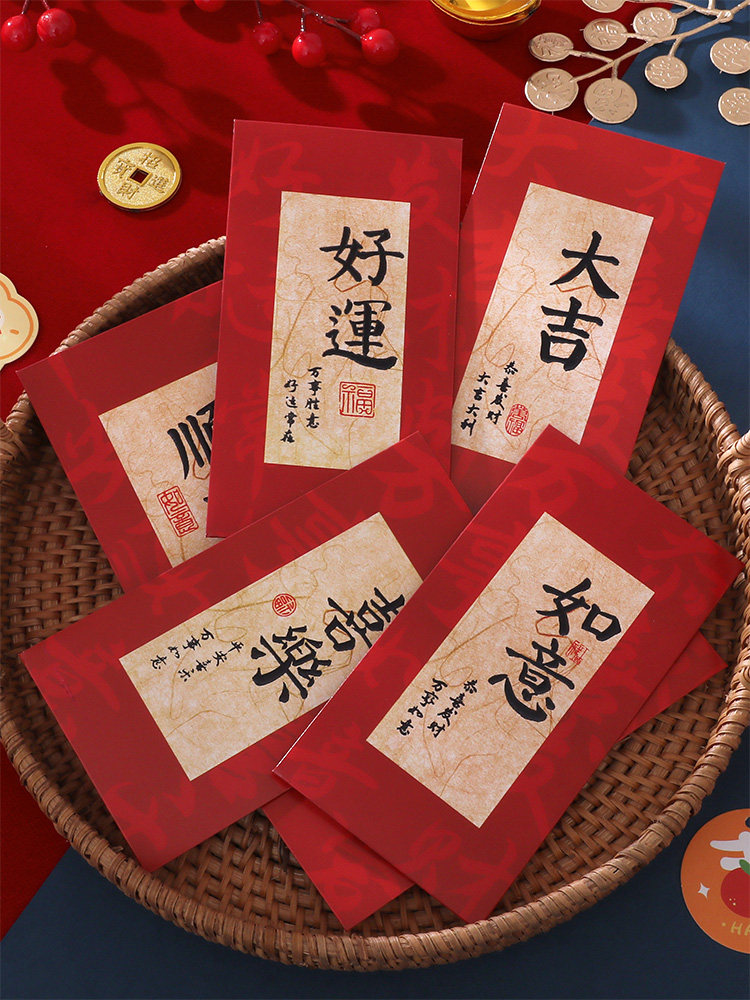 招
財
進
寶
好運
万事胜意
好运常在
福
大吉
恭喜发财
大吉大利
顺
喜樂
平安喜乐
万事如意
如意
恭喜发财
万事如意